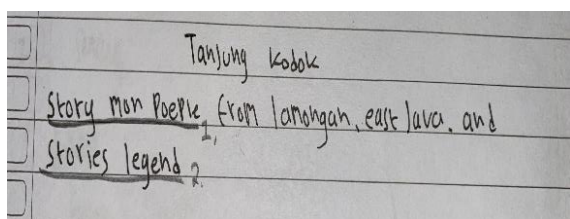 Tanjung kodok
Story mon Poeple 1, from lamongan, east Java, and
stories legend 2.